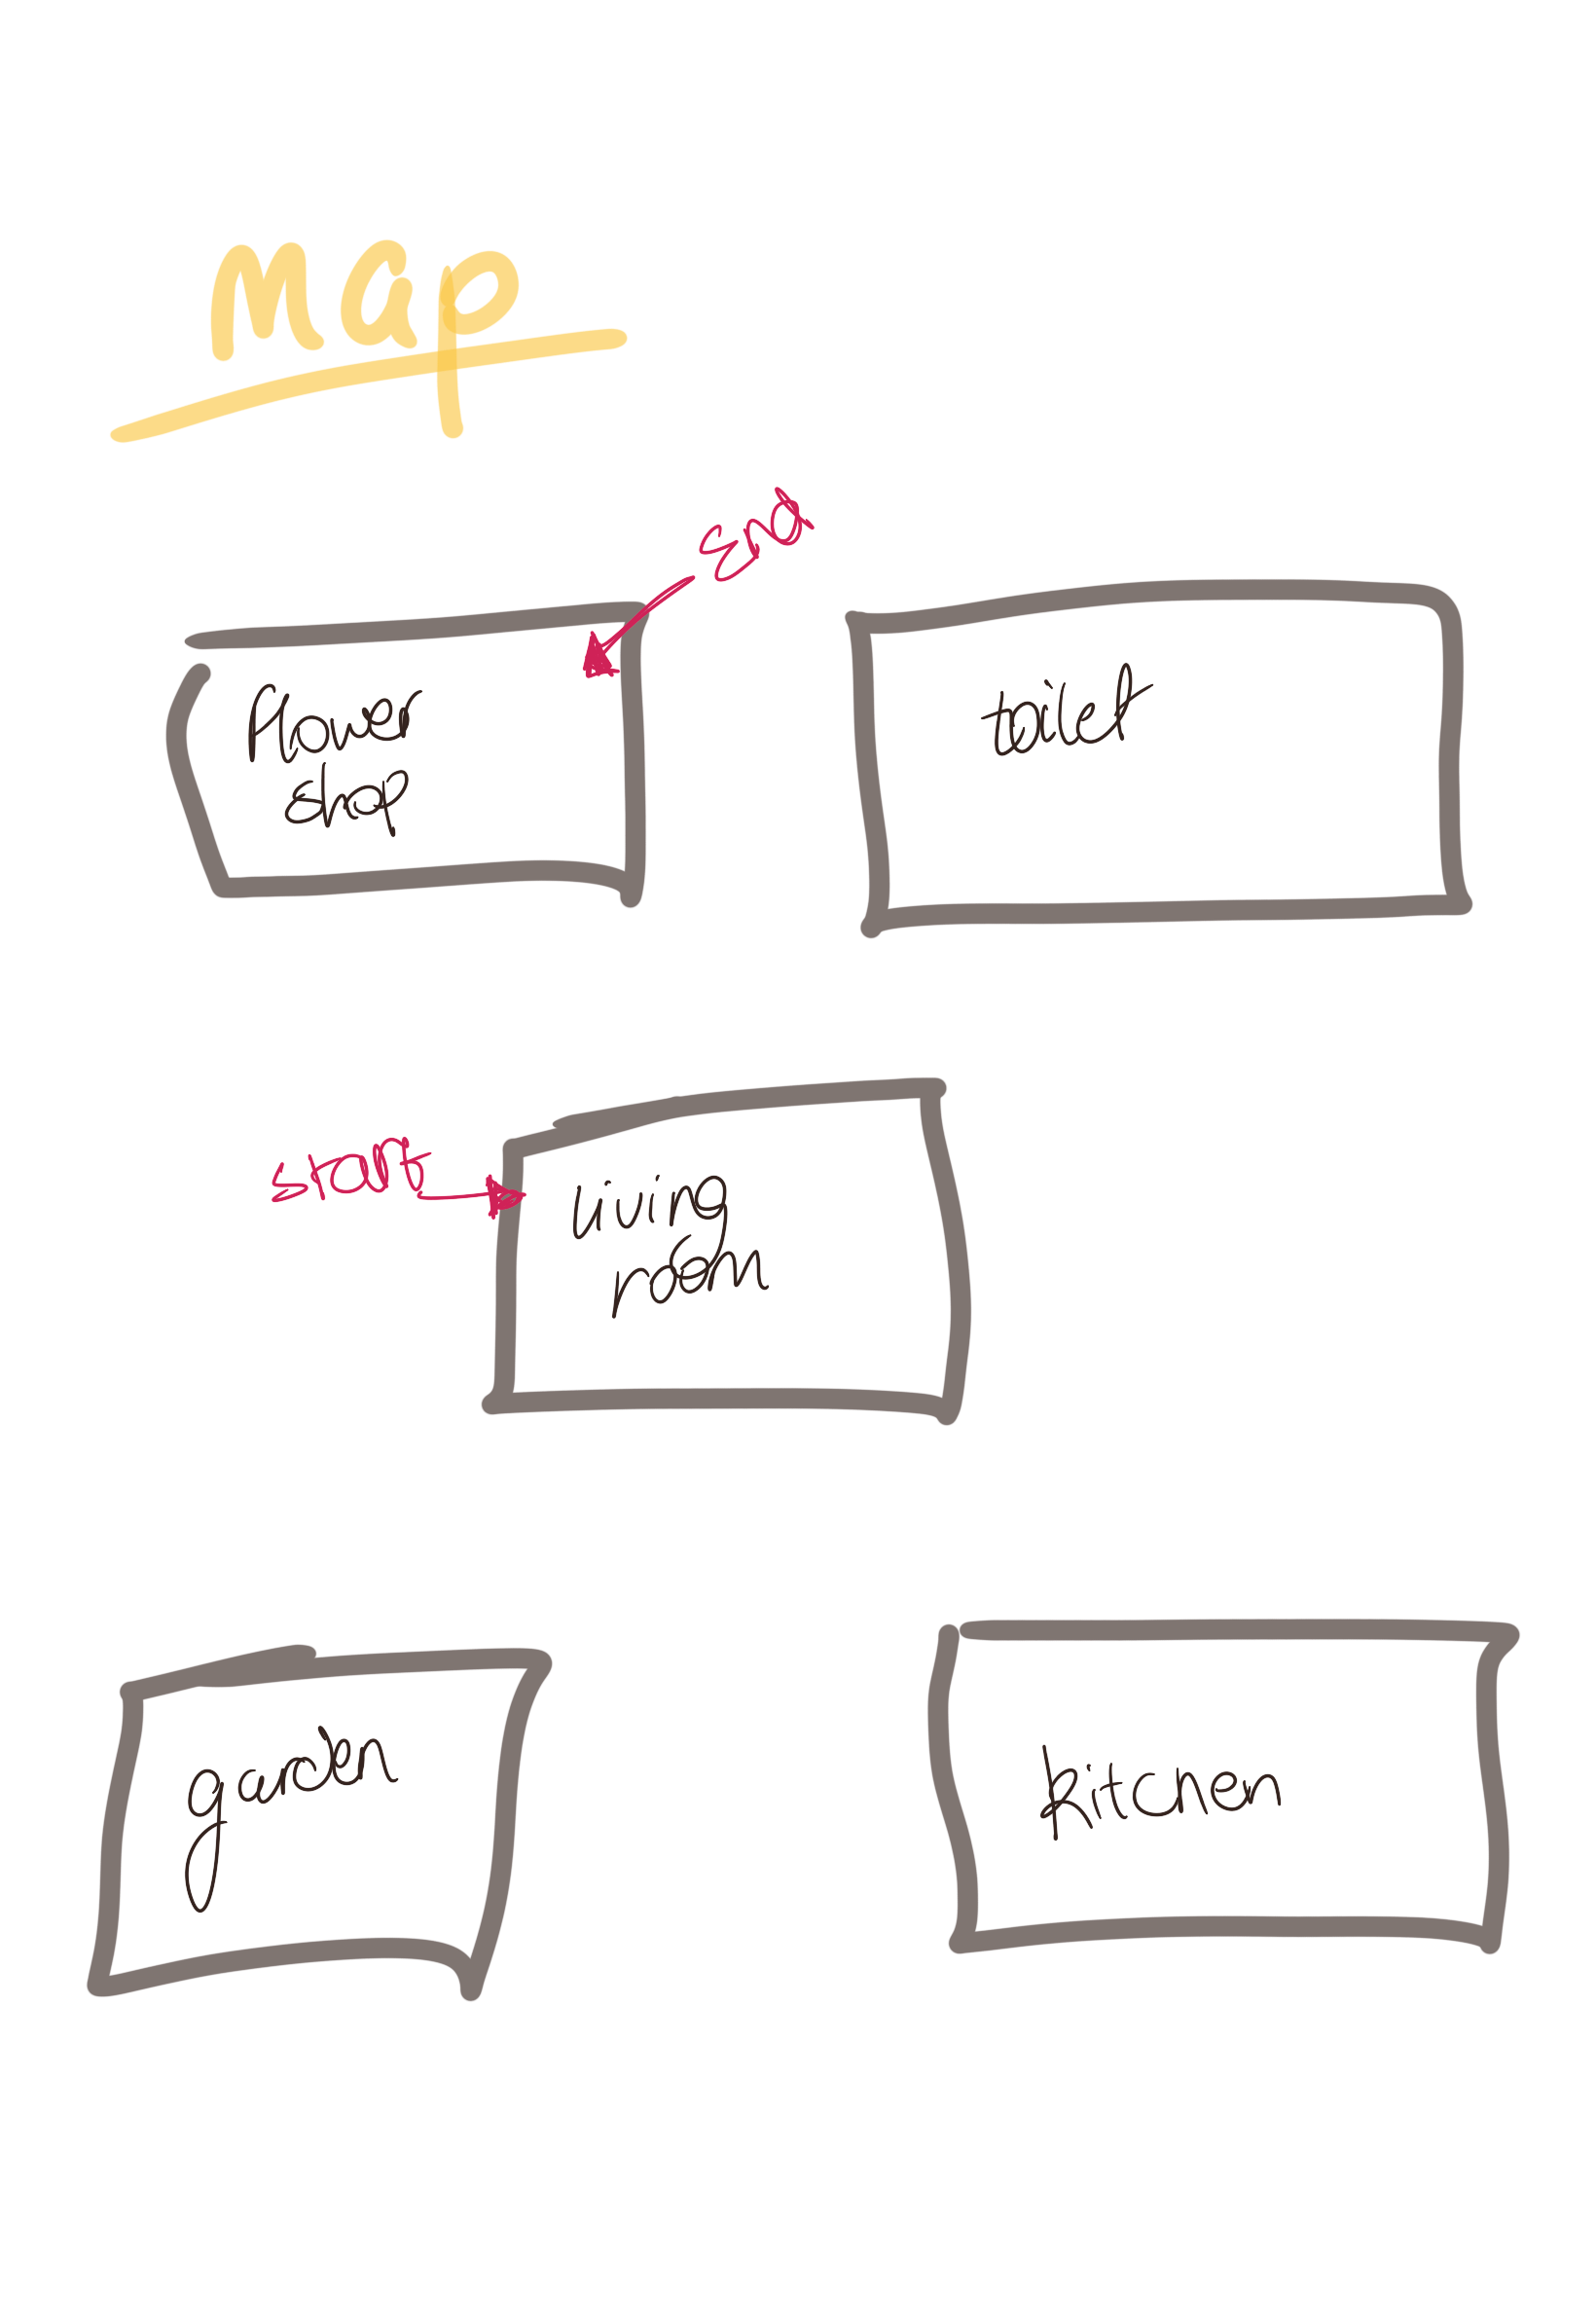 map
End
flower
shop
toilet
start
living
room
garden
kitchen